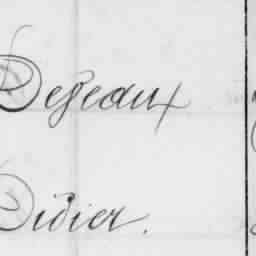 Dejeaux
Didier.